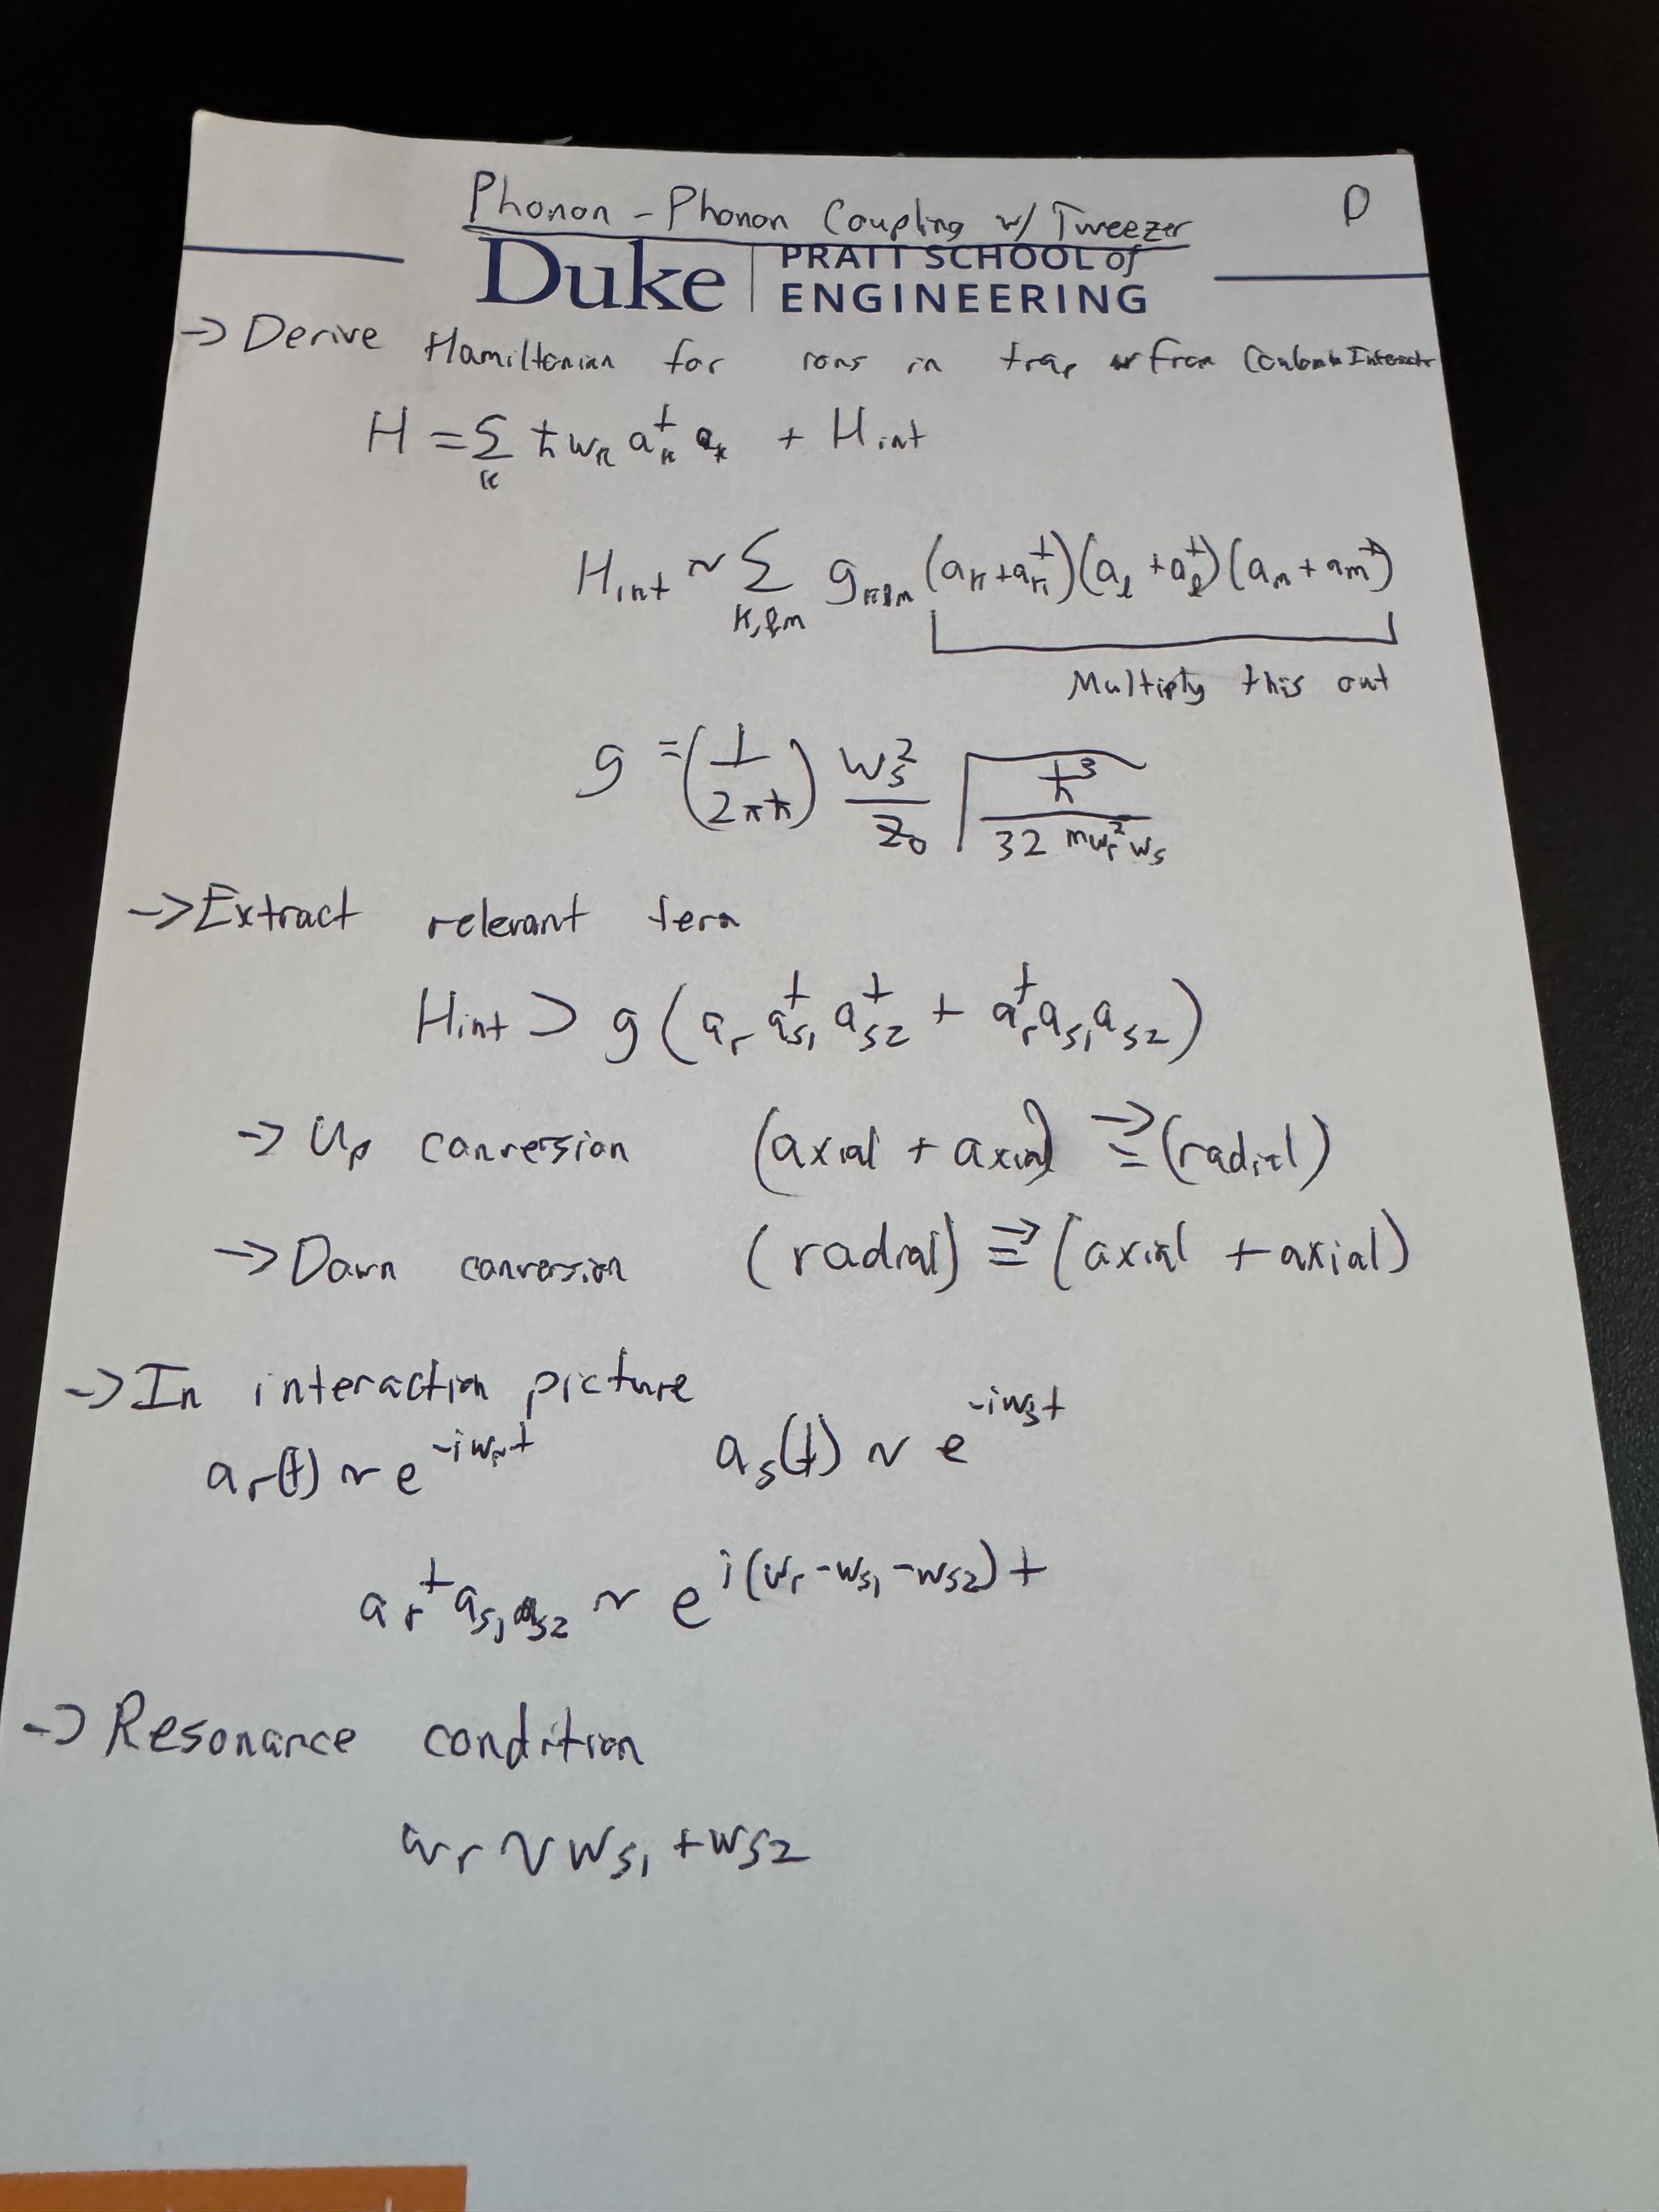 Phonon - Phonon Coupling w/ Tweezer D
Duke PRATT SCHOOL of
ENGINEERING
-> Derive Hamiltonian for ions in trap from Coulomb Interact
H = Σ_k ħ w_k a_k^† a_k + H_int
H_int ~ Σ_{k,lm} g_{klm} (a_k + a_k^†)(a_l + a_l^†)(a_m + a_m^†)
Multiply this out
g = (1/2πħ) w_s^2/z_0 √(ħ^3/32 m w_r^2 w_s)
-> Extract relevant term
H_int ⊃ g (a_r a_{s1}^† a_{s2}^† + a_r^† a_{s1} a_{s2})
-> Up conversion (axial + axial) => (radial)
-> Down conversion (radial) => (axial + axial)
-> In interaction picture
a_r(t) ~ e^{-i w_r t} a_s(t) ~ e^{-i w_s t}
a_r^† a_{s1} a_{s2} ~ e^{i(w_r - w_{s1} - w_{s2})t}
-> Resonance condition
w_r ~ w_{s1} + w_{s2}